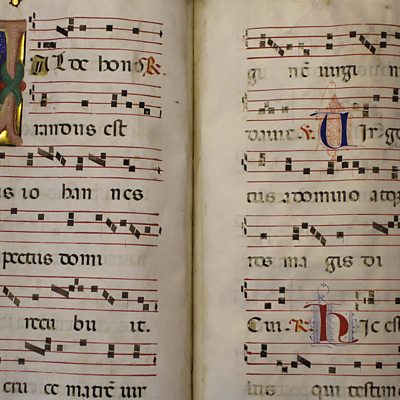 AL de hon R.
randus est
us io han nes
pectus domi
recu bu it.
cru ce matrē uir
gi nē uirgini
dauit. V. Uir g
tus a domino atq
ros ma gis di
Cui. R. Hic est
qui testim